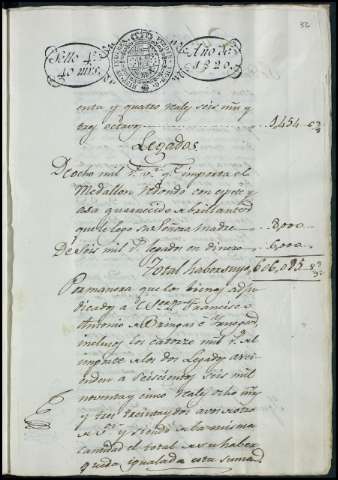 32
Sello 4º
40 mrs.
Año de
1820.
enta y quatro reales seis mrs y
tres octavos 1,454
Legados
De ocho mil rs. vn. qe. importa el
Medallon redondo con copete y
asa guarnecido de brillantes
que le lego su Señora Madre 8,000
De Seis mil rs. legados en dinero 6,000
Total haber suyo, 606,095
Por manera que los bienes adju
dicados a Francisco
Antonio de
inclusos los catorce mil rs. del
importe de los dos Legados asci
enden a Seiscientos Seis mil
noventa y cinco reales ocho mrs
y tres treinta y dos avos de otro
y siendo esta misma
cantidad el total de su haber
queda igualada esta suma